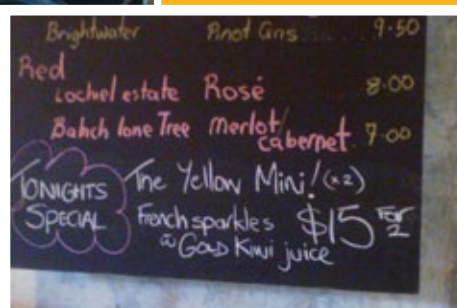 Brightwater Pinot Gris ..... 9.50
Red
Lochiel estate Rosé 8.00
Batch lone Tree Merlot/
cabernet 7.00
TONIGHTS
SPECIAL
The Yellow Mini! (x2)
French sparkles
@ Gold Kiwi juice
$15 FOR
2